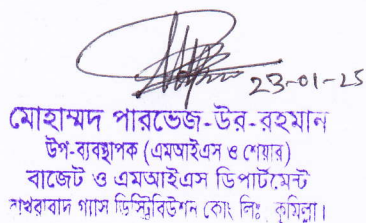 23-01-25
মোহাম্মদ পারভেজ-উর-রহমান
উপ-ব্যবস্থাপক (এমআইএস ও শেয়ার)
বাজেট ও এমআইএস ডিপার্টমেন্ট
বাখরাবাদ গ্যাস ডিস্ট্রিবিউশন কোং লিঃ, কুমিল্লা।